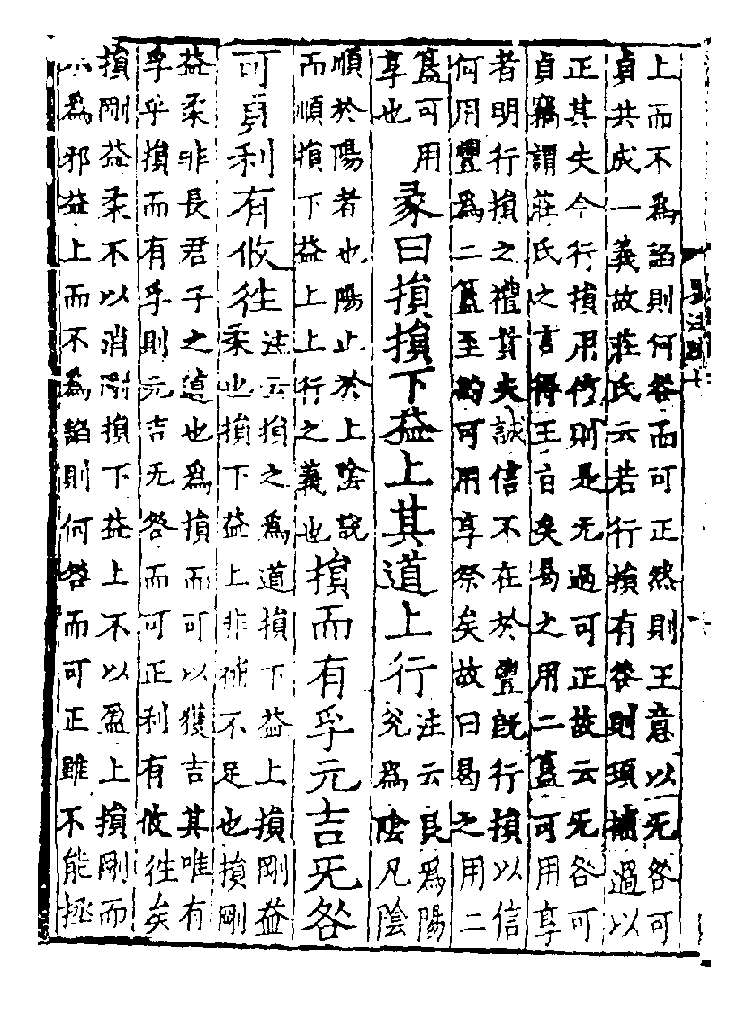 上而不為諂則何咎而可正然則王意以无咎可
貞共成一義故莊氏云若行損有咎則須補過以
正其失今行損用信則是无過可正故云无咎可
貞竊謂莊氏之言得王旨矣曷之用二簋可用享
者明行損之禮貴夫誠信不在於豐既行損以信
何用豐為二簋至約可用享祭矣故曰曷之用二
簋可用
享也
彖曰損損下益上其道上行
注云艮為陽
兊為陰凡陰
順於陽者也陽止於上陰說
而順損下益上上行之義也
損而有孚元吉无咎
可貞利有攸往
注云損之為道損下益上損剛益
柔也損下益上非補不足也損剛
益柔非長君子之道也為損而可以獲吉其唯有
孚乎損而有孚則元吉无咎而可正利有攸往矣
損剛益柔不以消剛損下益上不以盈上損剛而
不為邪益上而不為諂則何咎而可正雖不能拯